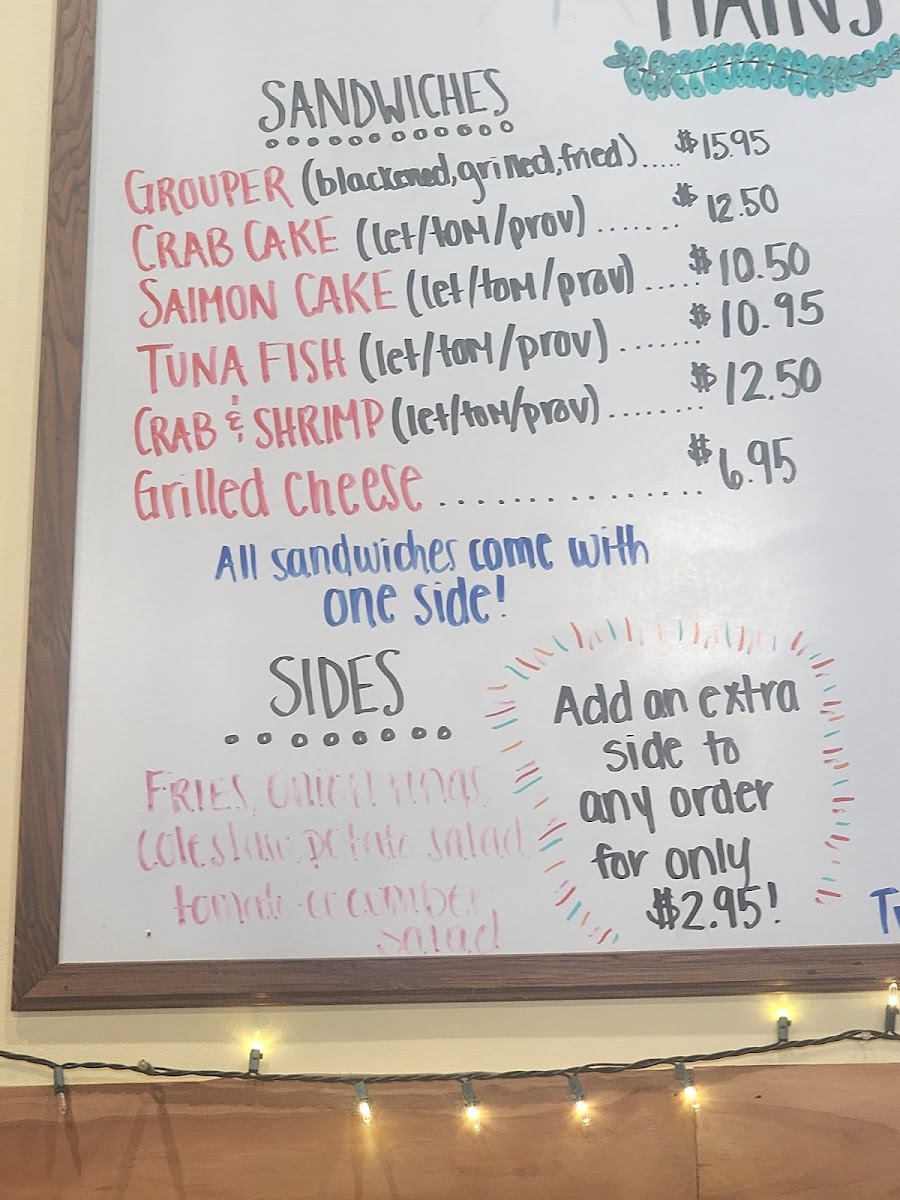 MAINS
SANDWICHES
GROUPER (blackened, grilled, fried)..... $15.95
CRAB CAKE (let/tom/prov) ....... $12.50
SALMON CAKE (let/tom/prov) ..... $10.50
TUNA FISH (let/tom/prov) ....... $10.95
CRAB & SHRIMP (let/tom/prov) ........ $12.50
Grilled cheese ................ $6.95
All sandwiches come with
one side!
SIDES
FRIES, onion rings,
coleslaw, potato salad
tomato-cucumber
salad
Add an extra
side to
any order
for only
$2.95!